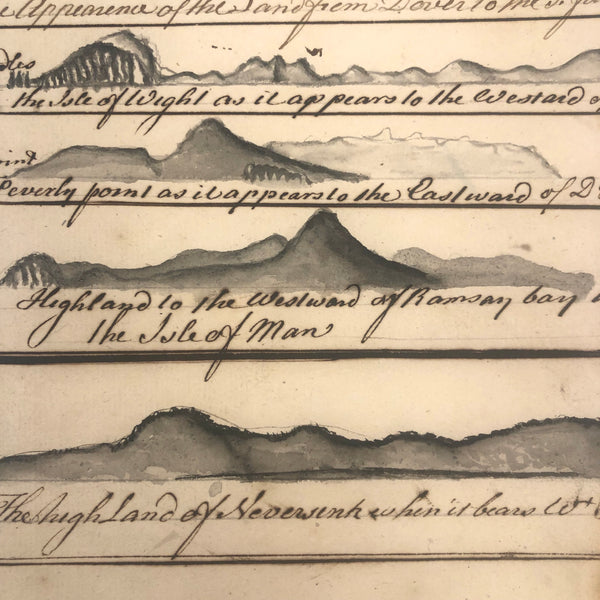 Appearence of the Land from Dover to the
the Isle of Wight as it appears to the Westard
Peverly point as it appears to the Eastward of D
Highland to the Westward of Ramsay bay
the Isle of Man
The high Land of Neversink when it bears Wt